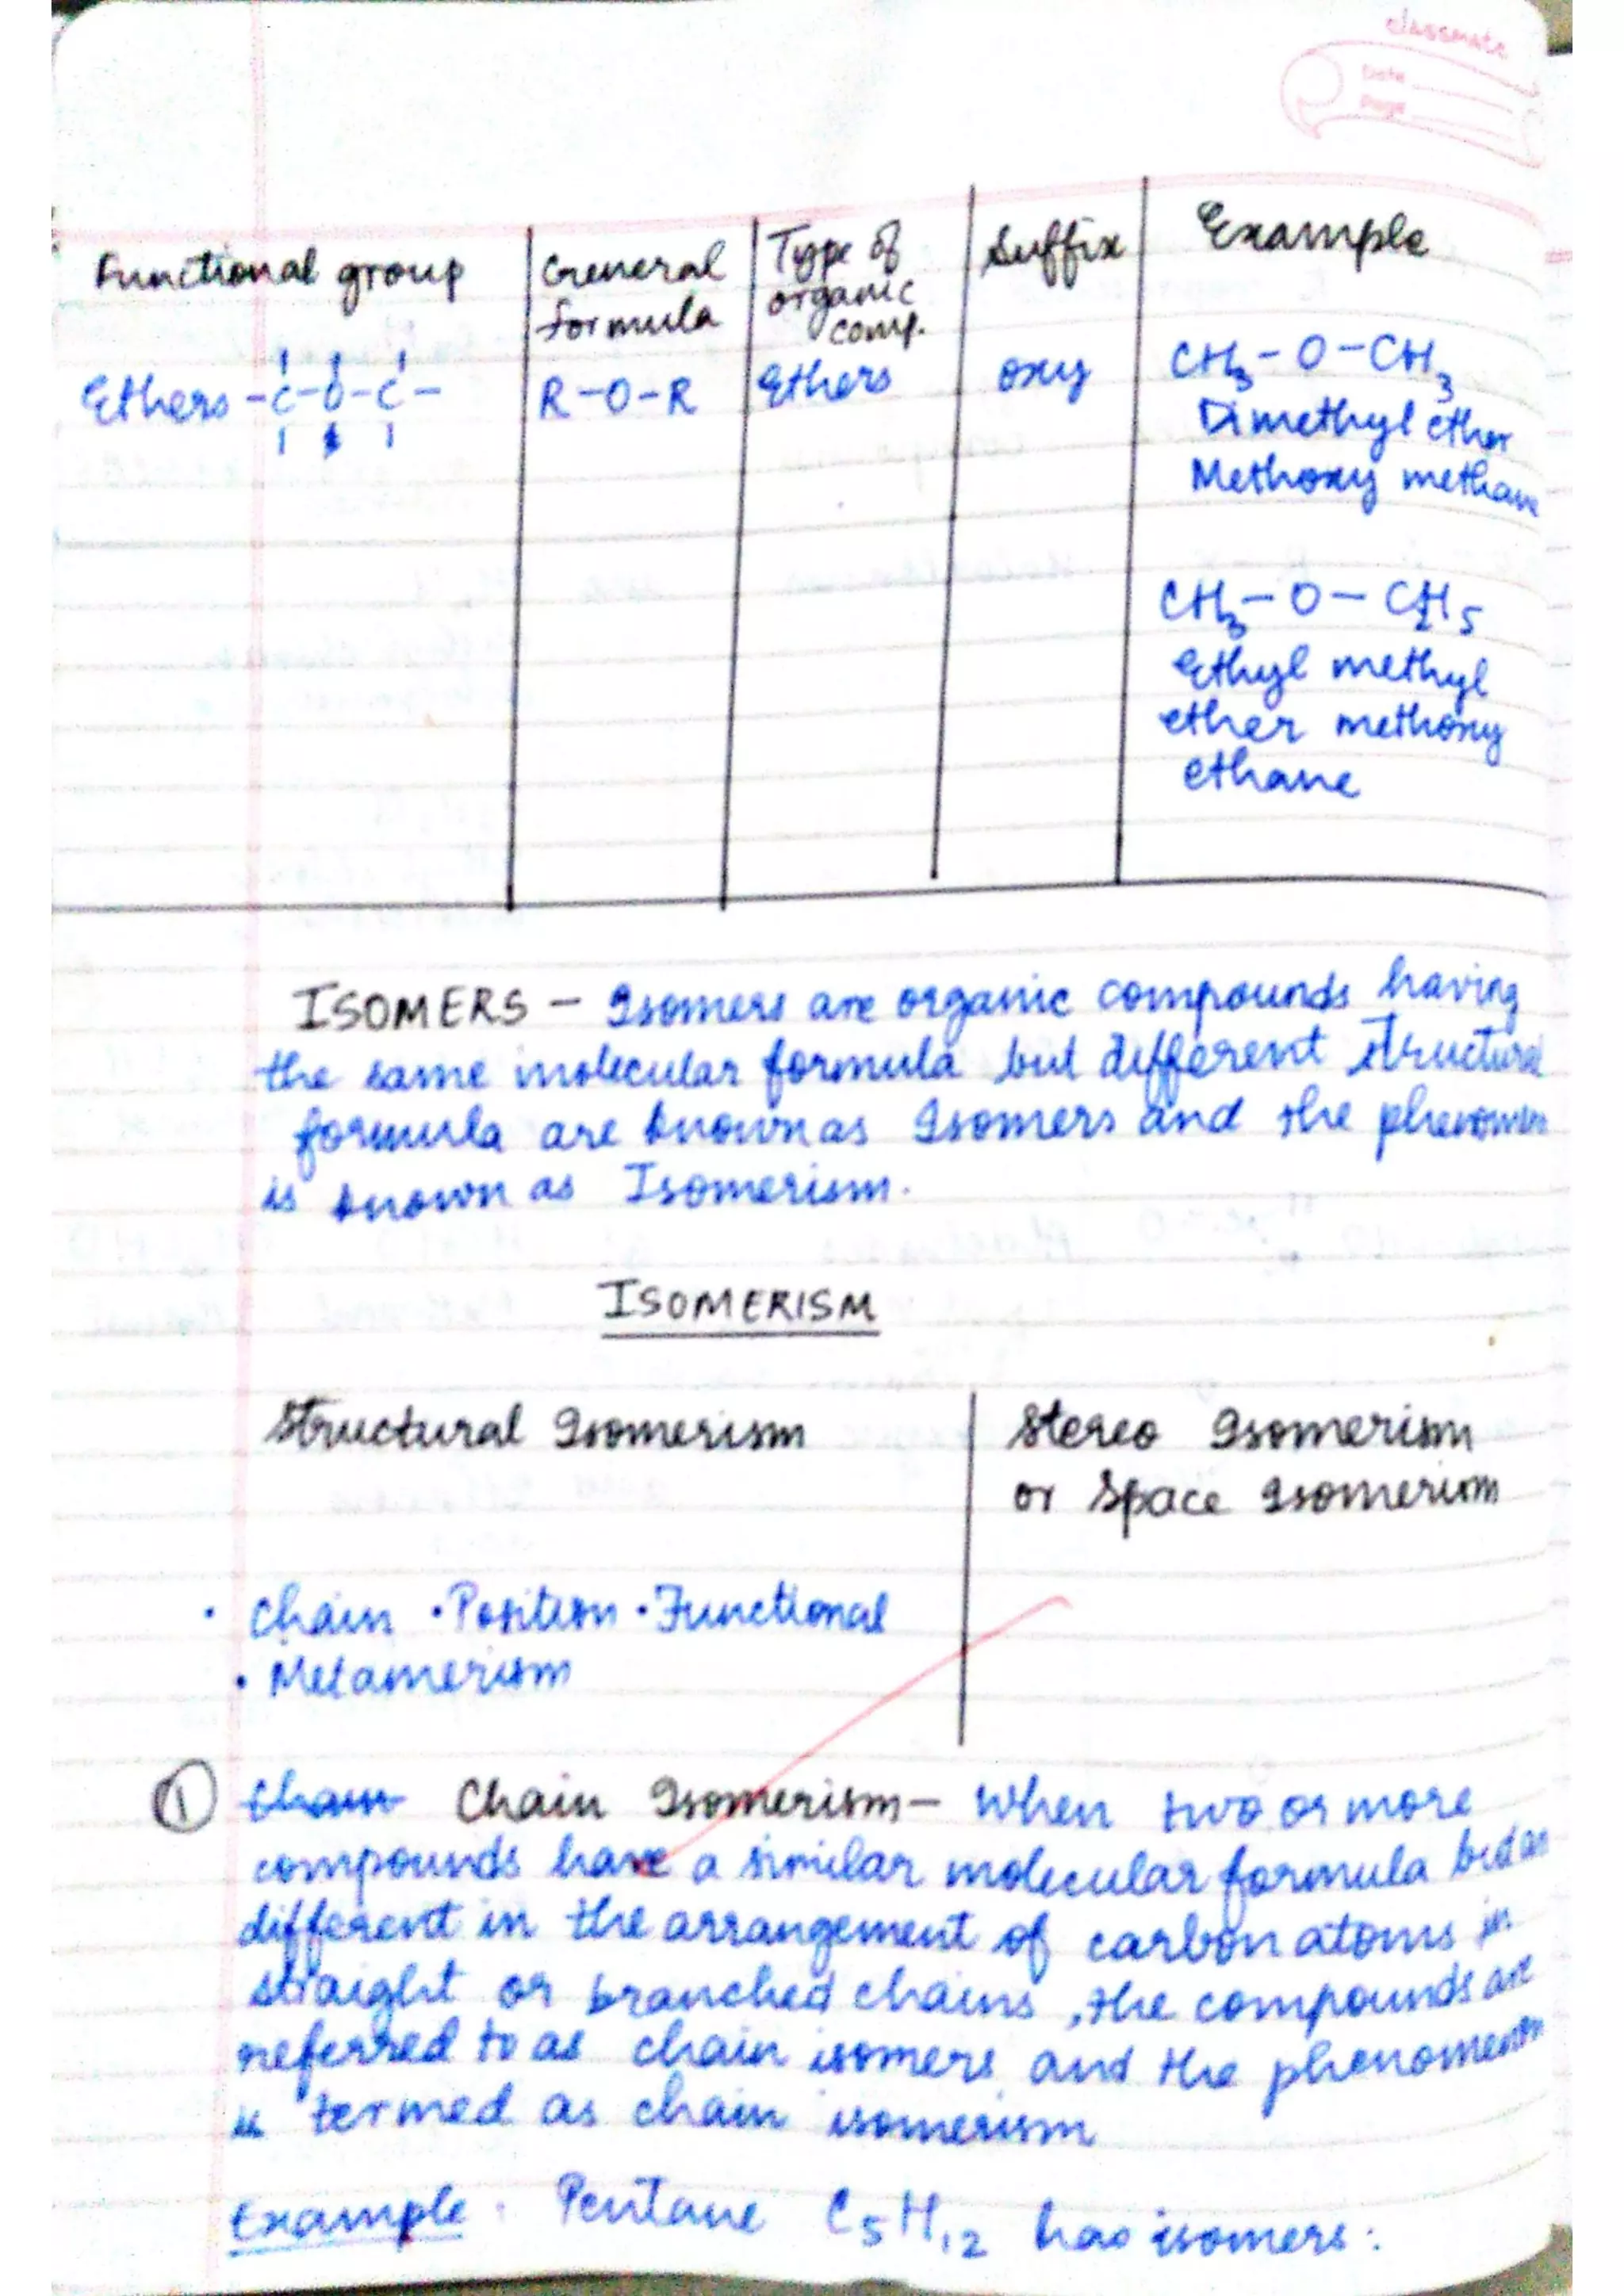 classmate
Date
Page
Functional group | General formula | Type of organic comp. | Suffix | Example
Ethers -C-O-C- | R-O-R | Ethers | oxy | CH3-O-CH3
Dimethyl ether
Methoxy methane
CH3-O-C2H5
Ethyl methyl
ether methoxy
ethane
ISOMERS - Isomers are organic compounds having
the same molecular formula but different structural
formula are known as Isomers and the phenomen
is known as Isomerism.
ISOMERISM
Structural Isomerism | Stereo Isomerism
or Space Isomerism
• Chain • Position • Functional
• Metamerism
① Chain Chain Isomerism- When two or more
compounds have a similar molecular formula but are
different in the arrangement of carbon atoms in
straight or branched chains, the compounds are
referred to as chain isomers and the phenomenon
is termed as chain isomerism
Example: Pentane C5H12 has isomers: